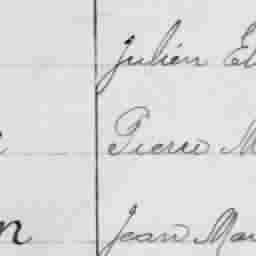 Julien
Pierre M
n Jean